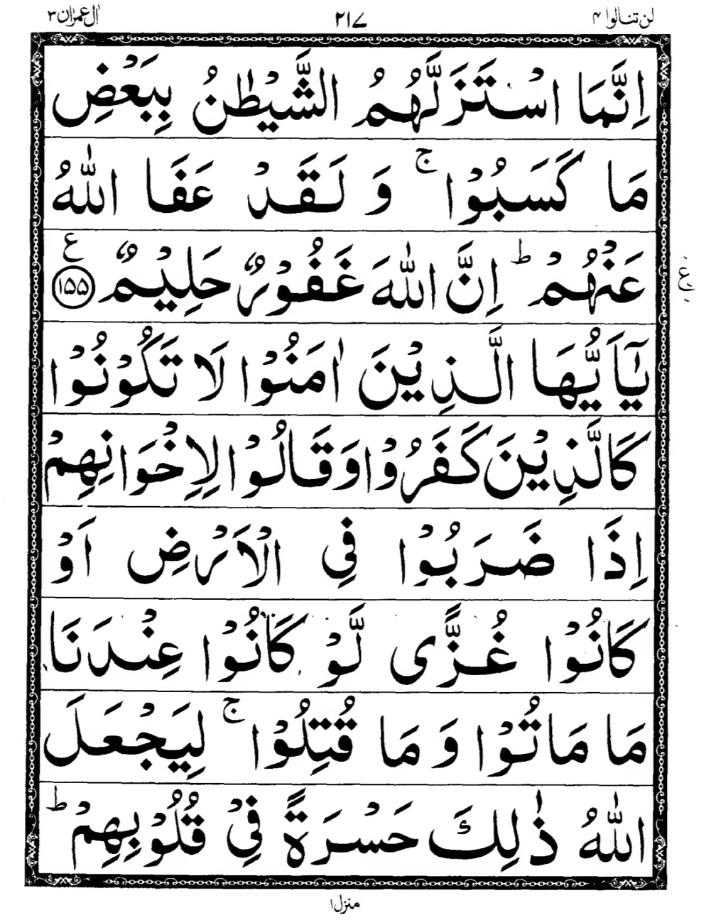 لن تنالوا ۴ ۲۱۷ اٰل عمرٰن ۳
اِنَّمَا اسْتَزَلَّهُمُ الشَّيْطٰنُ بِبَعْضِ
مَا كَسَبُوْا ۚ وَ لَقَدْ عَفَا اللّٰهُ
عَنْهُمْ ؕ اِنَّ اللّٰهَ غَفُوْرٌ حَلِيْمٌ ع ۱۵۵
يٰۤاَيُّهَا الَّذِيْنَ اٰمَنُوْا لَا تَكُوْنُوْا
كَالَّذِيْنَ كَفَرُوْا وَ قَالُوْا لِاِخْوَانِهِمْ
اِذَا ضَرَبُوْا فِي الْاَرْضِ اَوْ
كَانُوْا غُزًّى لَّوْ كَانُوْا عِنْدَنَا
مَا مَاتُوْا وَ مَا قُتِلُوْا ۚ لِيَجْعَلَ
اللّٰهُ ذٰلِكَ حَسْرَةً فِيْ قُلُوْبِهِمْ ؕ
منزل ۱